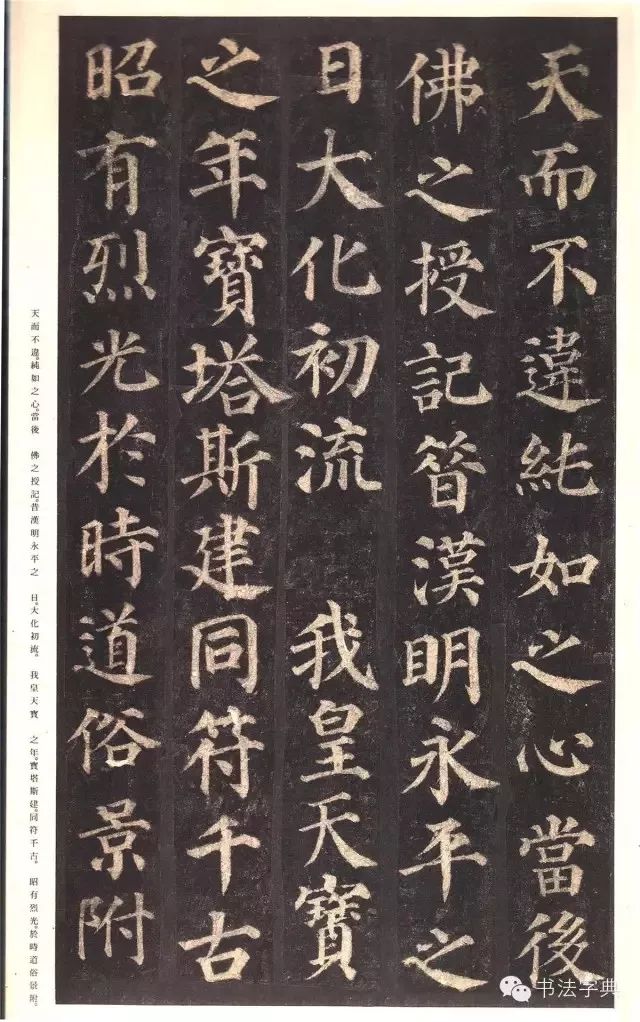 天而不違純如之心當後
佛之授記昔漢明永平之
日大化初流 我皇天寶
之年寶塔斯建同符千古
昭有烈光於時道俗景附
天而不違。純如之心。當後 佛之授記。昔漢明永平之 日。大化初流。 我皇天寶 之年。寶塔斯建。同符千古。 昭有烈光。於時道俗景附。
书法字典